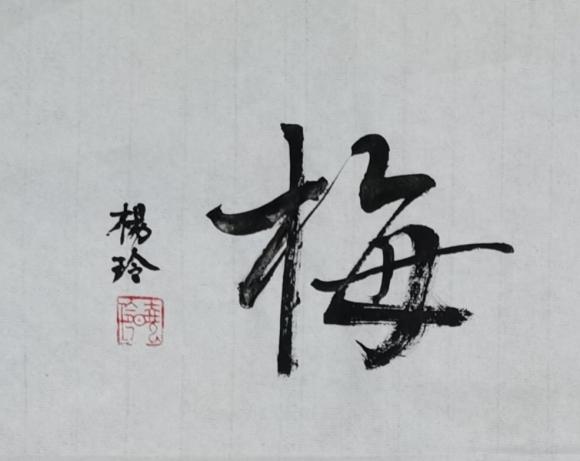 梅
楊玲